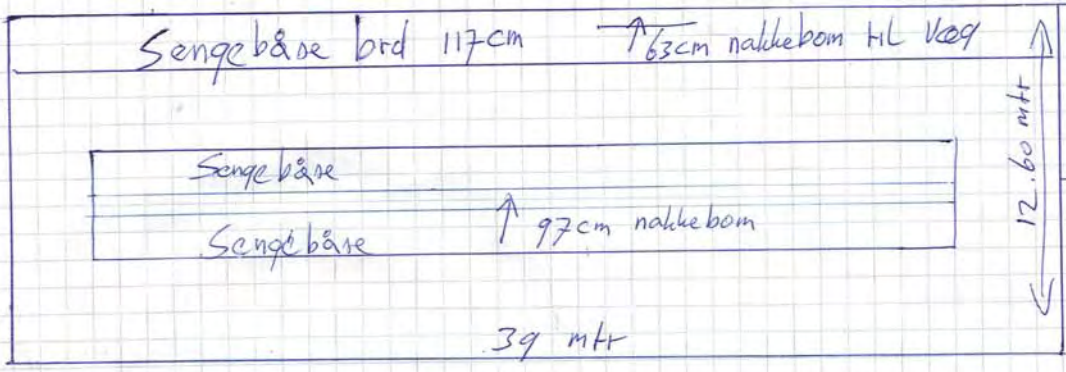 Sengebåse brd 117cm
63cm nakkebom til Væg
12.60 mtr
Sengebåse
97cm nakkebom
Sengebåse
39 mtr